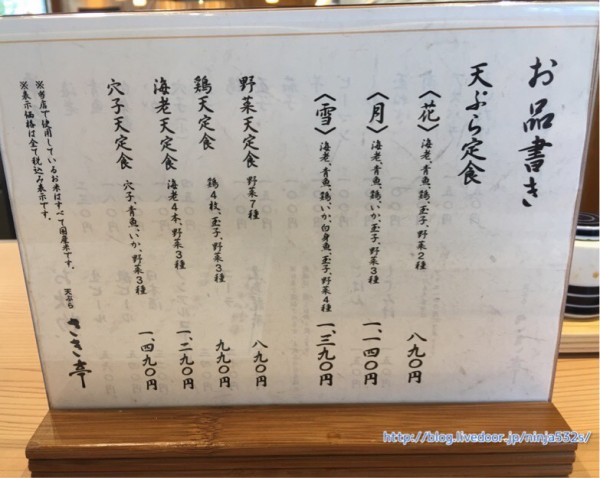 お品書き
天ぷら定食
〈花〉海老、青魚、鶏、玉子、野菜2種 八九〇円
〈月〉海老、青魚、鶏、いか、玉子、野菜3種 一、一四〇円
〈雪〉海老、青魚、鶏、いか、白身魚、玉子、野菜4種 一、三九〇円
野菜天定食 野菜7種 八九〇円
鶏天定食 鶏4枚、玉子、野菜3種 九九〇円
海老天定食 海老4本、野菜3種 一、二九〇円
穴子天定食 穴子、青魚、いか、野菜3種 一、四九〇円
※当店で使用しているお米はすべて国産米です。
※表示価格は全て税込み表示です。
天ぷら さき亭
http://blog.livedoor.jp/ninja532s/